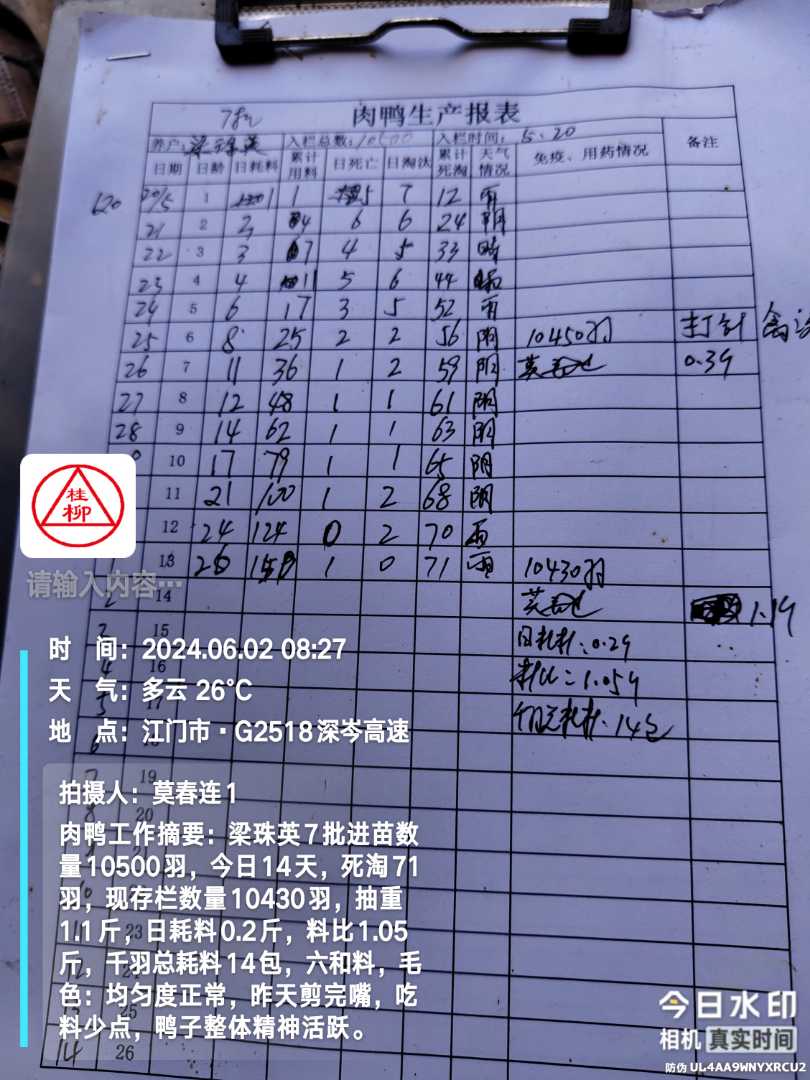 7批 肉鸭生产报表
养户: 梁珠英 入栏总数: 10500 入栏时间: 5.20 备注
日期 日龄 日耗料 累计用料 日死亡 日淘汰 累计死淘 天气情况 免疫、用药情况
620 20/5 1 1 1 5 7 12 雨
21 2 2 4 6 6 24 阴
22 3 3 7 4 5 33
23 4 4 11 5 6 44
24 5 6 17 3 5 52 雨
25 6 8 25 2 2 56 阴 10450羽 打针
26 7 11 36 1 2 59 阴 0.39
27 8 12 48 1 1 61 阴
28 9 14 62 1 1 63 阴
10 17 79 1 1 65 阴
11 21 100 1 2 68 阴
12 24 124 0 2 70 雨
13 26 150 1 0 71 雨 10430羽
桂柳
请输入内容…
2 14 1.1斤
3 15 日耗料:0.2斤
时 间：2024.06.02 08:27
4 16 料比=1.05斤
天 气：多云 26°C
5 17 14包
地 点：江门市·G2518深岑高速
6 18
7 19
拍摄人：莫春连1
8 20
肉鸭工作摘要：梁珠英7批进苗数
量10500羽，今日14天，死淘71
羽，现存栏数量10430羽，抽重
1.1斤，日耗料0.2斤，料比1.05
斤，千羽总耗料14包，六和料，毛
色：均匀度正常，昨天剪完嘴，吃
料少点，鸭子整体精神活跃。
23
25
14 26
今日水印
相机 真实时间
防伪 UL4AA9WNYXRCU2